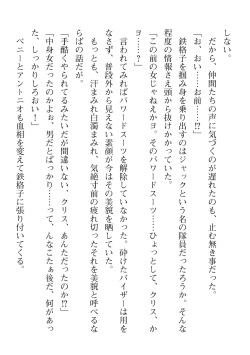 しない。
　だから、仲間たちの声に気づくのが遅れたのも、止む無き事だった。
「お、おい……お前……!?」
　鉄格子を掴み身を乗り出すのはジャックという名の隊員だったろうか。そんな
程度の情報さえ頭から抜けかかっていた。
「この前の女じゃねえかヨ、そのパワードスーツ……ひょっとして、クリス、か
ヨ……？」
　言われてみればパワードスーツを解除していなかった。砕けたバイザーは用を
なさず、普段外から見えない素顔が今はその美貌を晒していた。
　もっとも、汗まみれ白濁まみれ、気絶寸前の疲れ切ったそれを美貌と呼べるな
らばの話だが。
「手酷くやられてるみたいだが間違いない、クリス、あんただったのか!?」
「中身女だったのかよぉ、男だとばっかり……って、んなこたぁ後だ、何があっ
た、しっかりしろおい！」
　ベニーとアントニオも血相を変えて鉄格子に張り付いてくる。